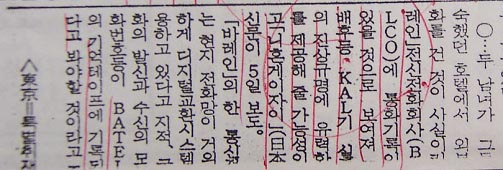 ○…두 남녀가
숙했던 호텔에서 외
화를 건 것이 사실이
레인」전신전화회사(B
LCO)에 통화기록이
있을 것으로 보여져
배후등 KAL기 실
의 진상규명에 유력한
를 제공해 줄 가능성이
고 니혼게이자이(日本
신문이 5일 보도。
「바레인」의 한 통신
는 현지 전화망이 거의
하게 디지털교환시스템
용하고 있다고 지적、그
화의 발신과 수신의 모
화번호등이 BATE
의 기억테이프에 기록되
다고 봐야할 것이라고
<東京=특별취재